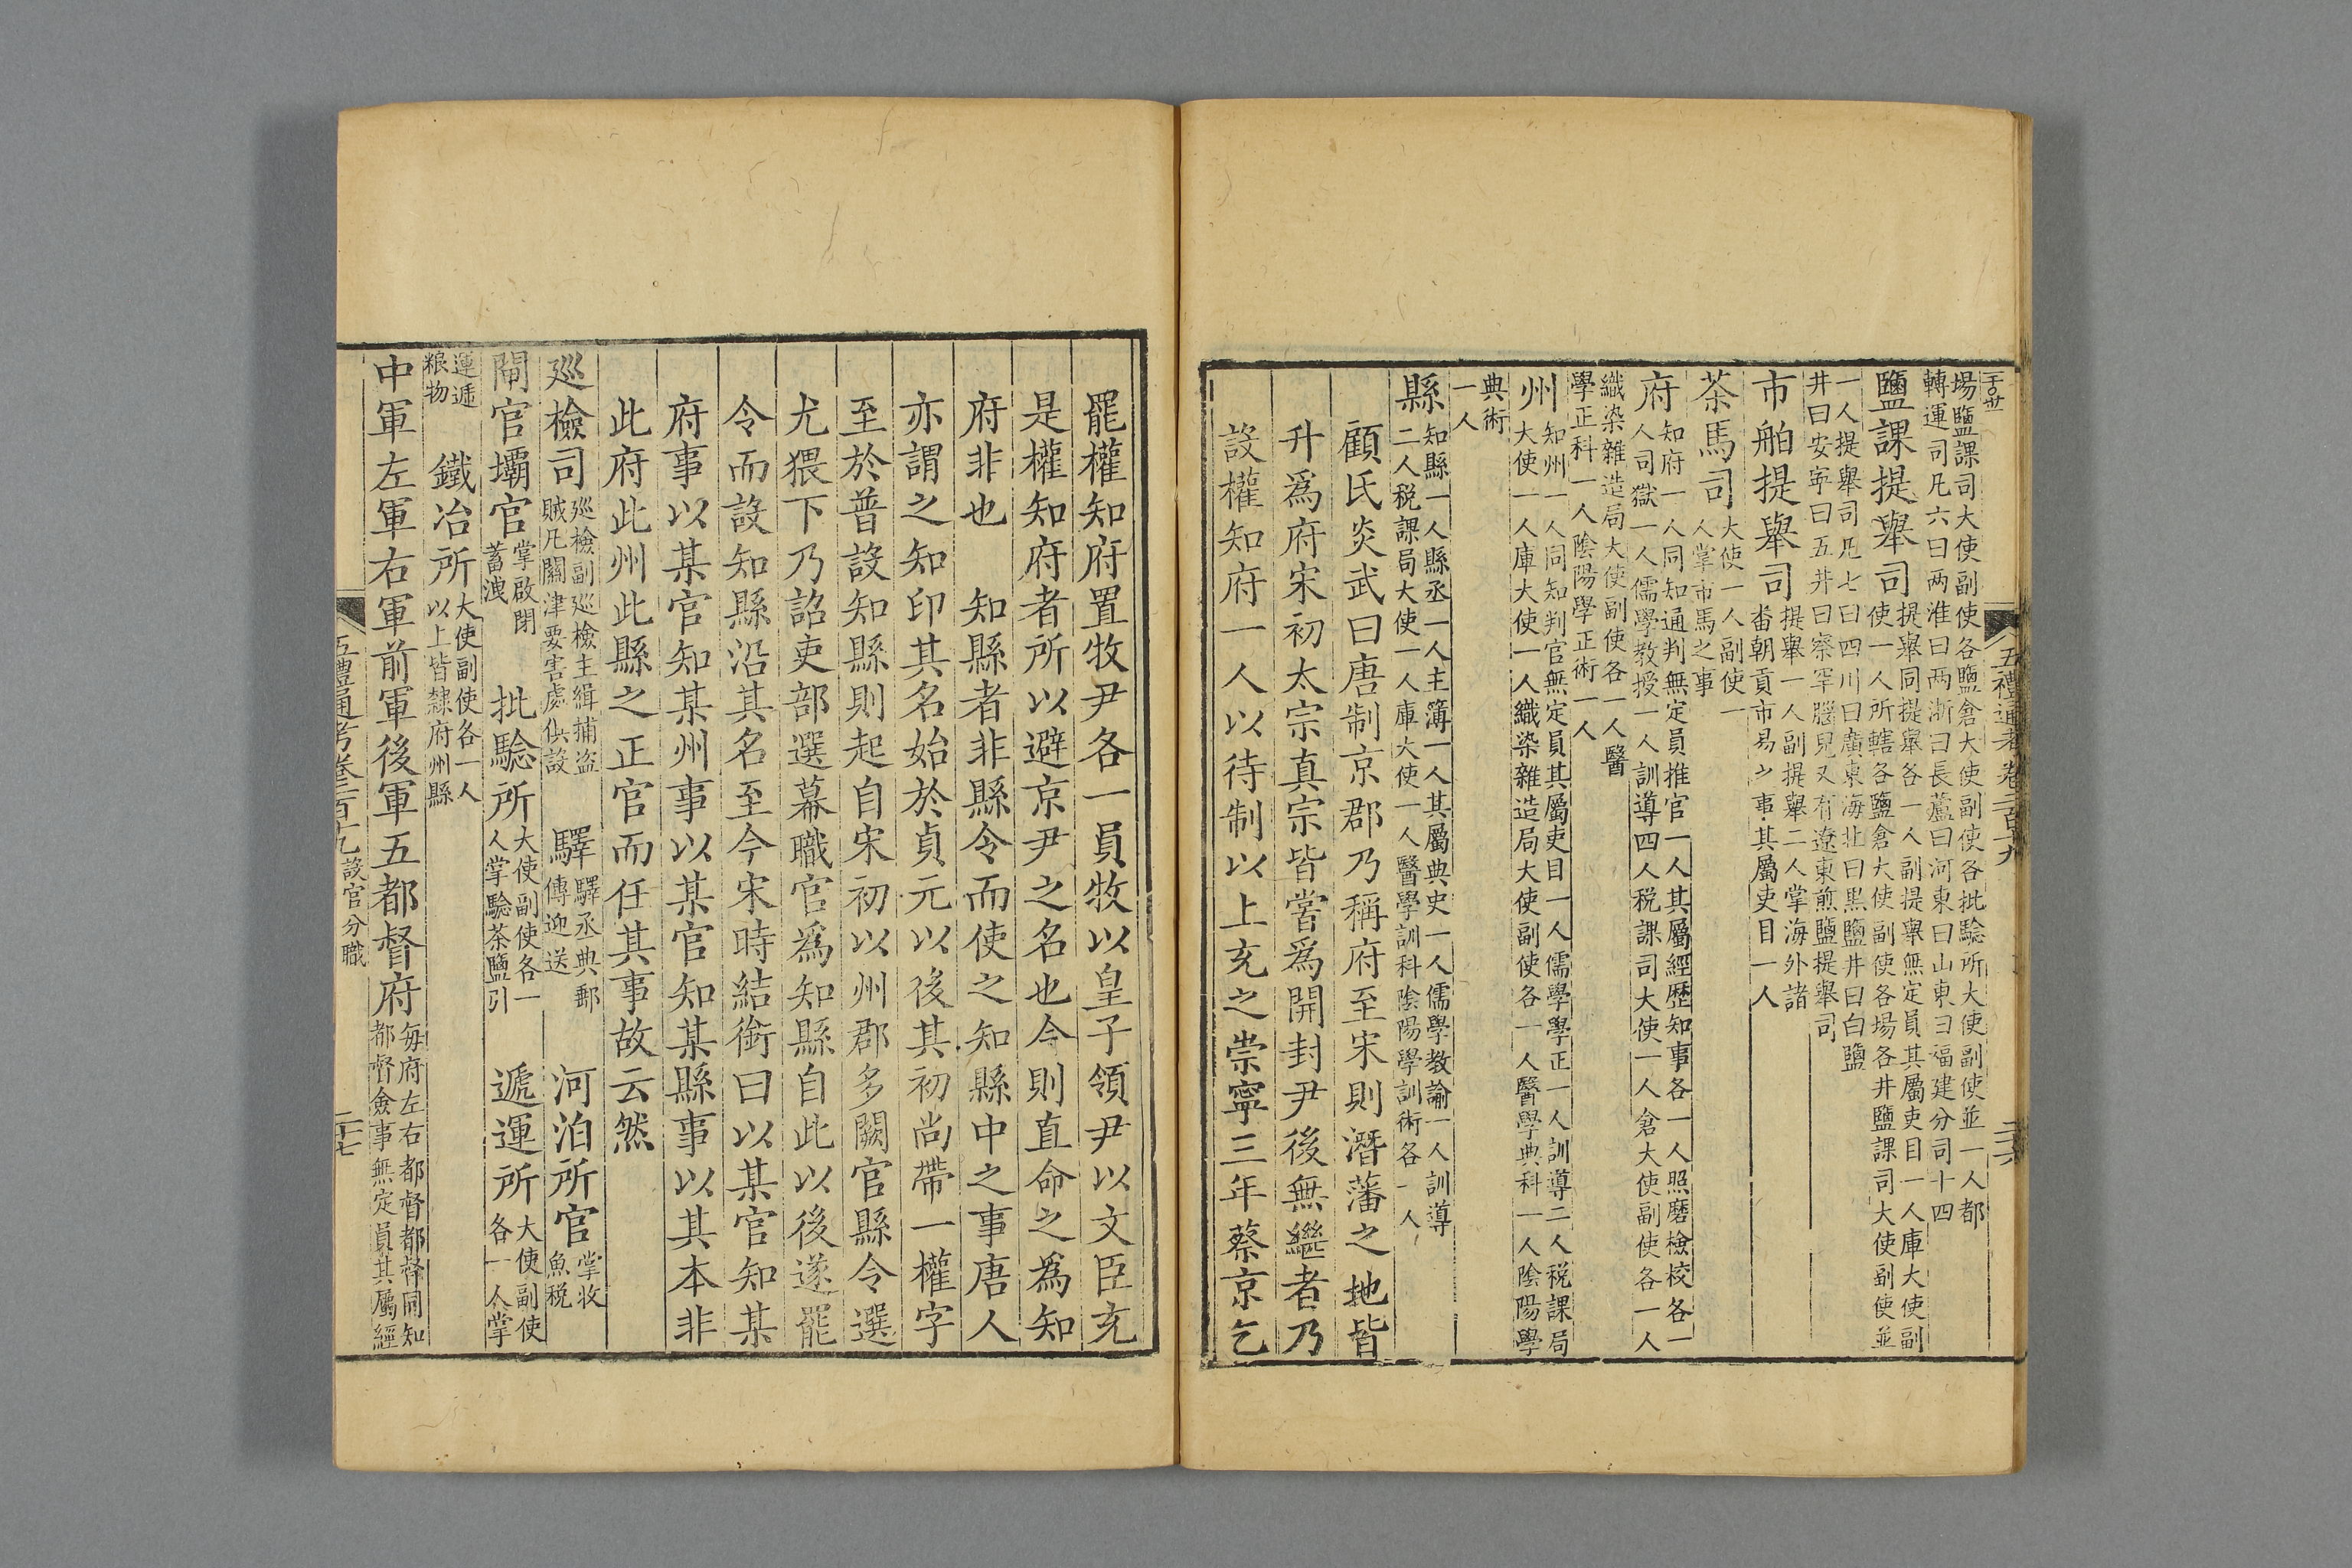 五禮通考卷二百十九
場鹽課司大使副使各鹽倉大使副使各批驗所大使副使並一人都
轉運司凡六曰两淮曰两浙曰長蘆曰河東曰山東曰福建分司十四
鹽課提舉司提舉同提舉各一人副提舉無定員其屬吏目一人庫大使副
使一人所轄各鹽倉大使副使各場各井鹽課司大使副使並
一人提舉司凡七曰四川曰廣東海北曰黑鹽井曰白鹽
井曰安寧曰五井曰察罕腦兒又有遼東煎鹽提舉司
市舶提舉司提舉一人副提舉二人掌海外諸
畨朝貢市易之事其屬吏目一人
茶馬司大使一人副使一
人掌市馬之事
府知府一人同知通判無定員推官一人其屬經歷知事各一人照磨檢校各一
人司獄一人儒學教授一人訓導四人税課司大使一人倉大使副使各一人
織染雜造局大使副使各一人醫
學正科一人陰陽學正術一人
州知州一人同知判官無定員其屬吏目一人儒學學正一人訓導二人税課局
大使一人庫大使一人織染雜造局大使副使各一人醫學典科一人陰陽學
典術
一人
縣知縣一人縣丞一人主簿一人其屬典史一人儒學教諭一人訓導
二人税課局大使一人庫大使一人醫學訓科陰陽學訓術各一人
顧氏炎武曰唐制京郡乃稱府至宋則潛藩之地皆
升爲府宋初太宗真宗皆嘗爲開封尹後無繼者乃
設權知府一人以待制以上充之崇寧三年蔡京乞
罷權知府置牧尹各一員牧以皇子領尹以文臣充
是權知府者所以避京尹之名也今則直命之爲知
府非也　知縣者非縣令而使之知縣中之事唐人
亦謂之知印其名始於貞元以後其初尚帶一權字
至於普設知縣則起自宋初以州郡多闕官縣令選
尤猥下乃詔吏部選幕職官爲知縣自此以後遂罷
令而設知縣沿其名至今宋時結銜曰以某官知某
府事以某官知某州事以某官知某縣事以其本非
此府此州此縣之正官而任其事故云然
巡檢司巡檢副巡檢主緝捕盗
賊凡關津要害處俱設
驛驛丞典郵
傳迎送
河泊所官掌收
魚税
閘官壩官掌啟閉
蓄洩
批驗所大使副使各一
人掌驗茶鹽引
遞運所大使副使
各一人掌
運遞
粮物
鐵冶所大使副使各一人
以上皆隸府州縣
中軍左軍右軍前軍後軍五都督府每府左右都督都督同知
都督僉事無定員其屬經
五禮通考卷二百十九　設官分職
二十七